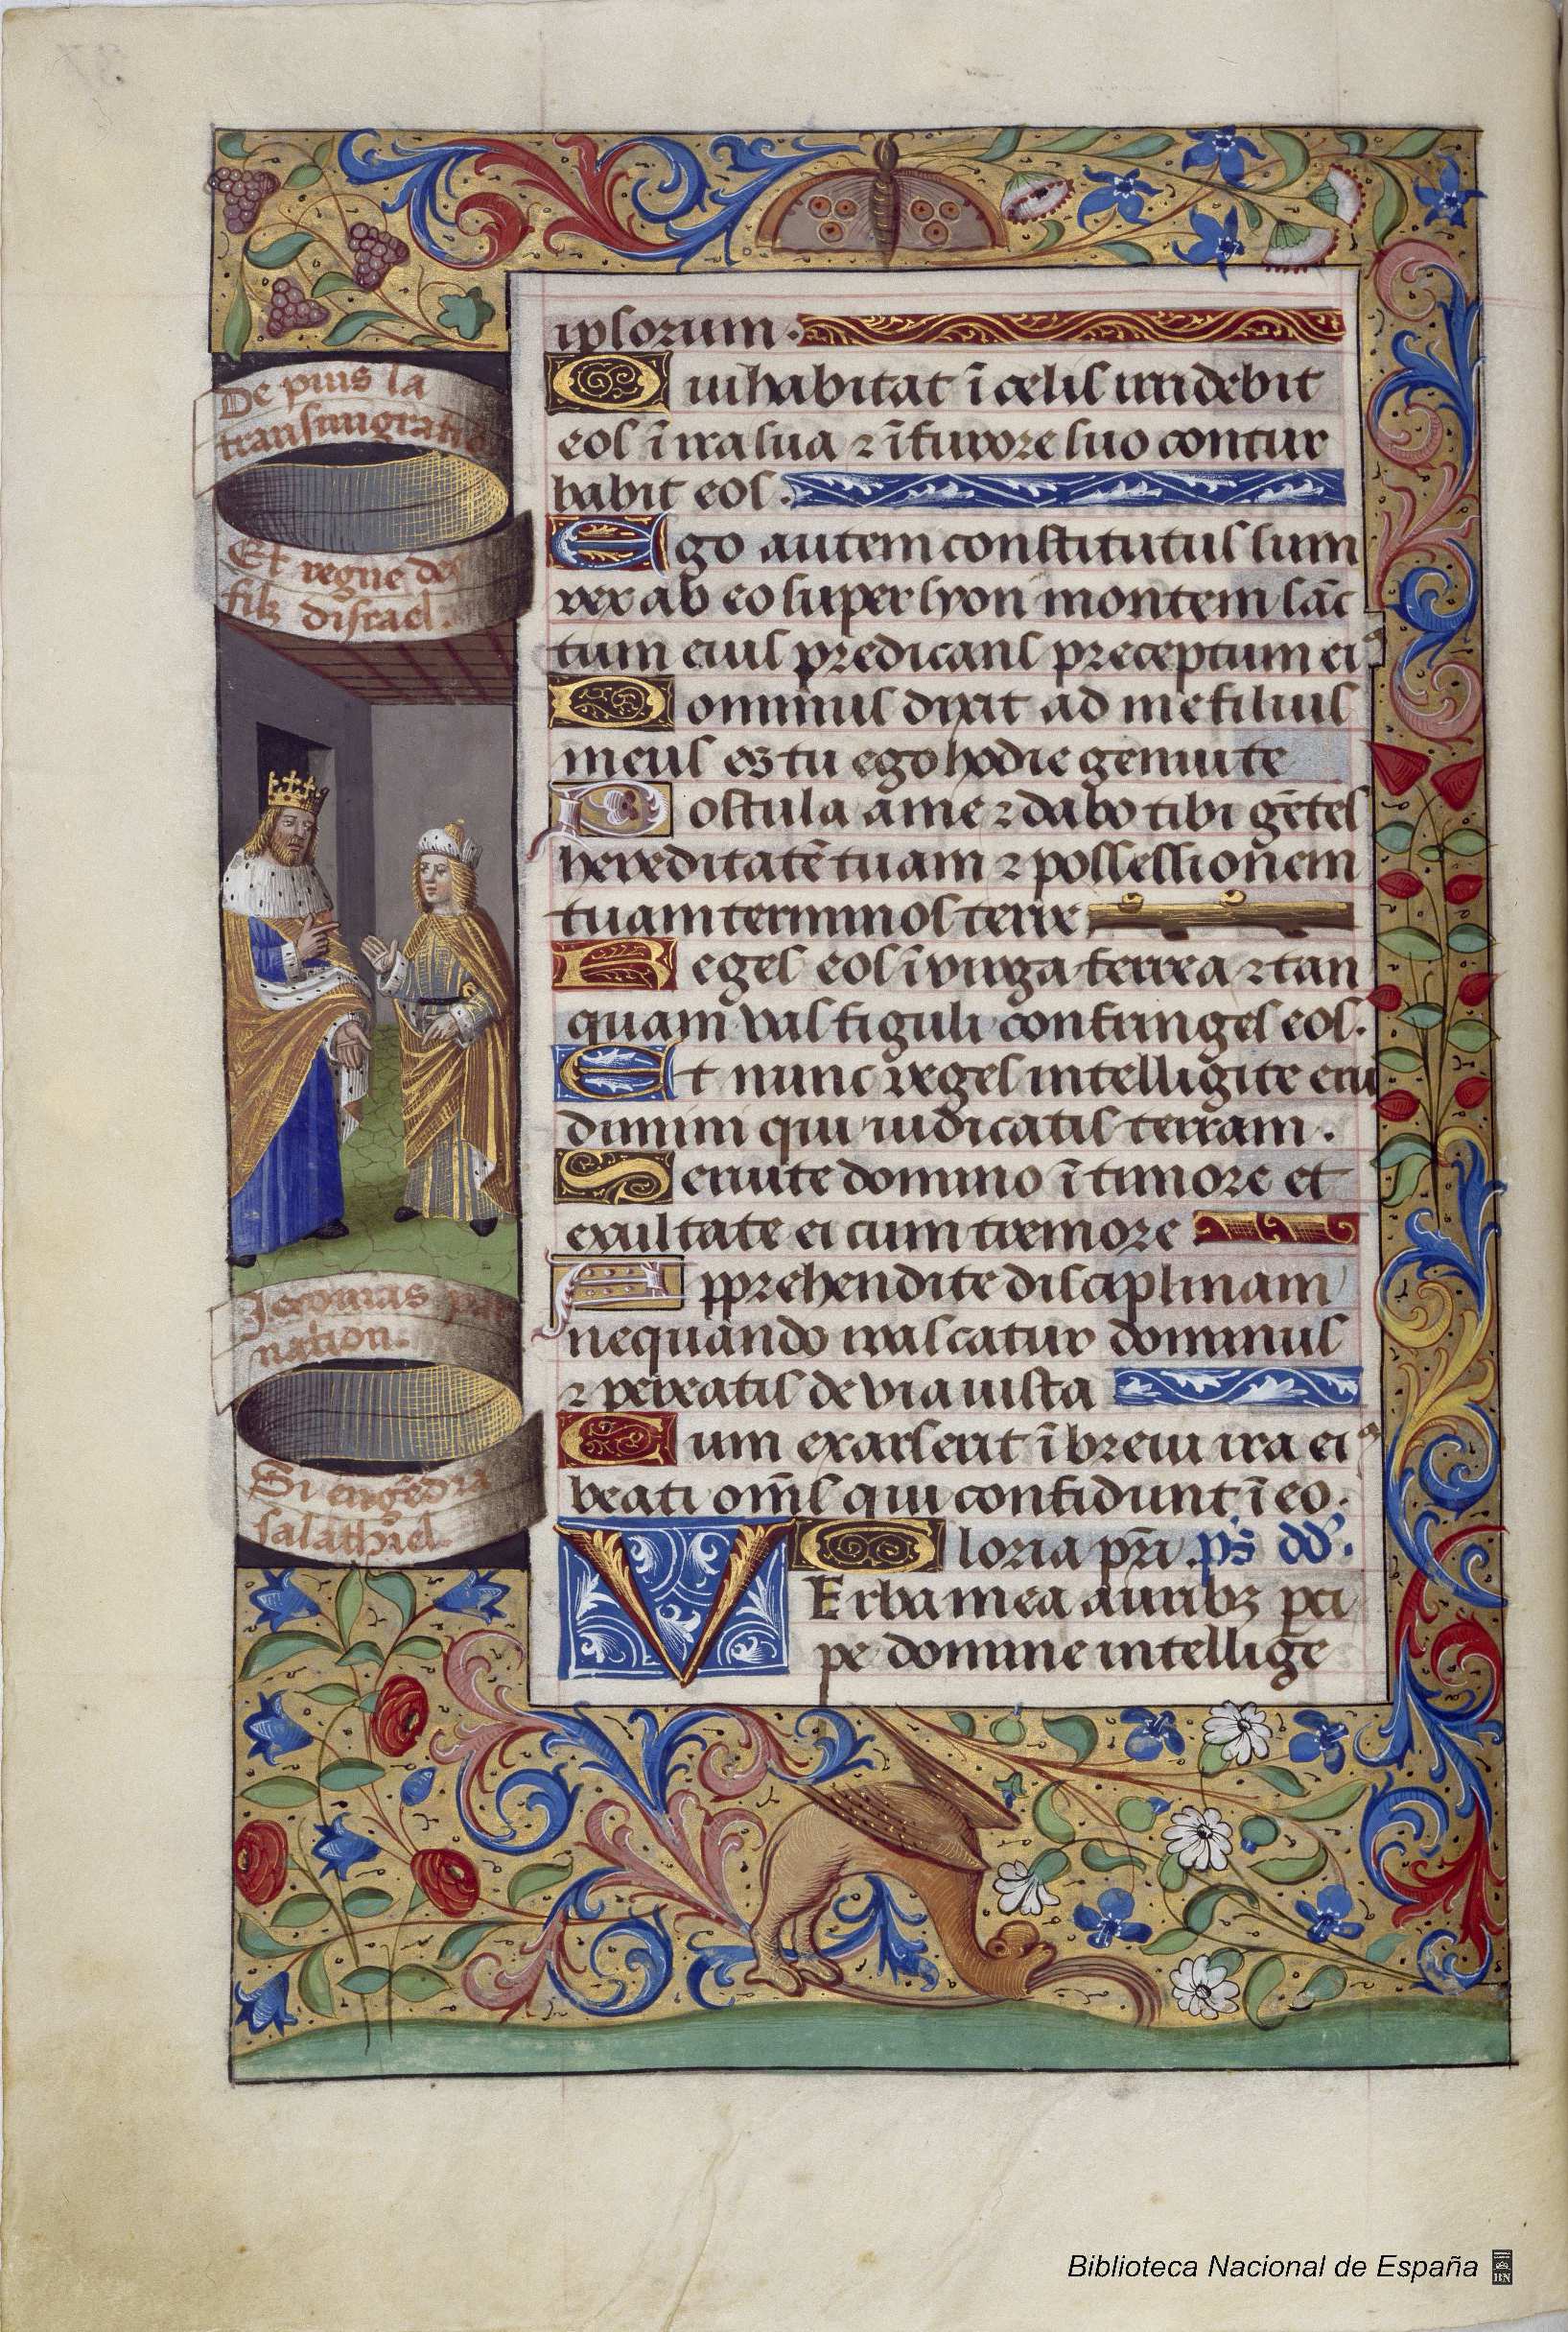 De puis la
transmigratio
Et regne des
filz disrael.
Jeconias par
nation.
Si engēdra
salathiel.
ipsorum.
Qui habitat ī celis irridebit
eos ī ira sua ⁊ ī furore suo contur
babit eos.
Ego autem constitutus sum
rex ab eo super syon montem sāc
tum eius predicans preceptum eiꝰ
Dominus dixit ad me filius
meus es tu ego hodie genui te
Postula a me ⁊ dabo tibi gētes
hereditatē tuam ⁊ possessionem
tuam terminos terre
Reges eos ī virga ferrea ⁊ tan
quam vas figuli confringes eos.
Et nunc reges intelligite eru
dimini qui iudicatis terram.
Seruite domino ī timore et
exultate ei cum tremore
Apprehendite disciplinam
nequando irascatur dominus
⁊ pereatis de via iusta
Cum exarserit ī breui ira eiꝰ
beati om̄s qui confidunt ī eo.
Gloria pr̄i. ps̄ dd̄.
VErba mea auribꝫ ꝑci
pe domine intellige
Biblioteca Nacional de España
BN